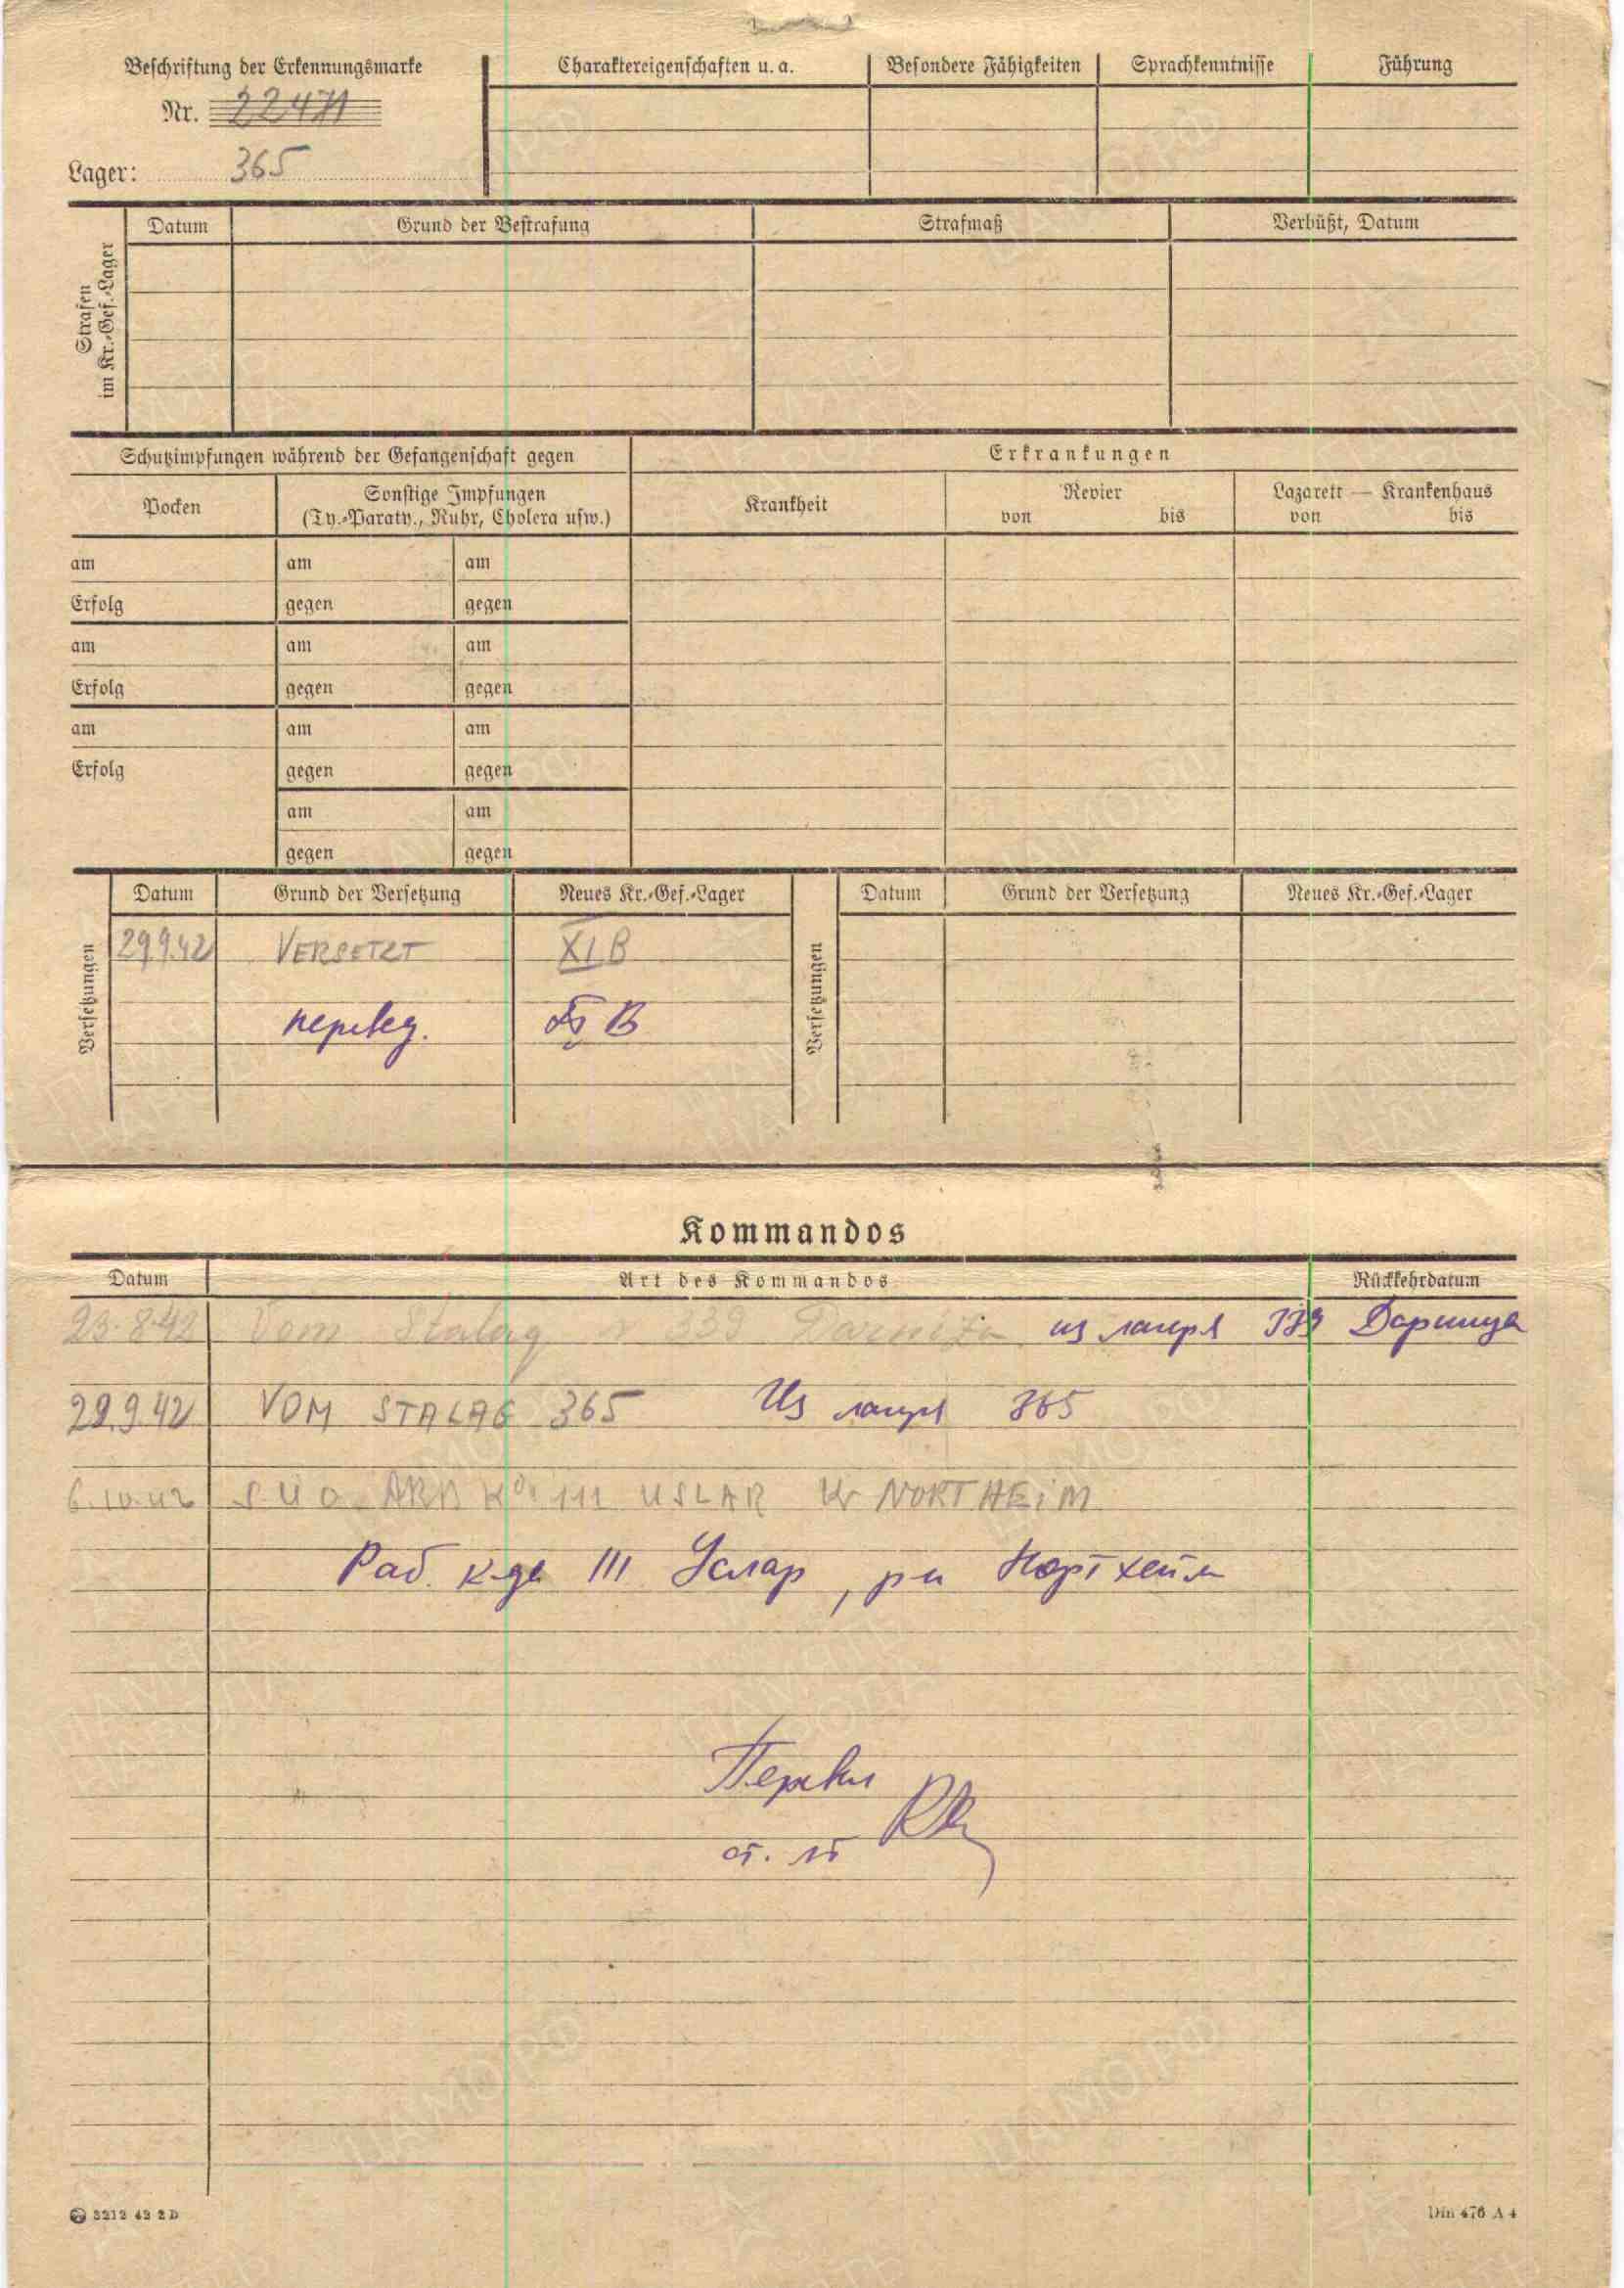 Beschriftung der Erkennungsmarke
Nr. 22471
Lager: 365
Charaktereigenschaften u. a.
Besondere Fähigkeiten
Sprachkenntnisse
Führung
Strafen im Kr.-Gef.-Lager
Datum
Grund der Bestrafung
Strafmaß
Verbüßt, Datum
Schutzimpfungen während der Gefangenschaft gegen
Erkrankungen
Pocken
Sonstige Impfungen
(Ty.-Paraty., Ruhr, Cholera usw.)
Krankheit
Revier
von bis
Lazarett — Krankenhaus
von bis
am am am
Erfolg gegen gegen
am am am
Erfolg gegen gegen
am am am
Erfolg gegen gegen
am am
gegen gegen
Versetzungen
Datum Grund der Versetzung Neues Kr.-Gef.-Lager
29.9.42 VERSETZT XI B
перевед. B
Versetzungen
Datum Grund der Versetzung Neues Kr.-Gef.-Lager
Kommandos
Datum Art des Kommandos Rückkehrdatum
23.8.42 Vom Stalag 339 Darniza из лагеря 339 Дарница
29.9.42 VOM STALAG 365 Из лагеря 365
6.10.42 ARB Kdo 111 USLAR Kr NORTHEIM
Раб. к-да 111 Услар, р-н Нортхейм
Перевел
ст. лт
3212 42 2 D
Din 476 A 4